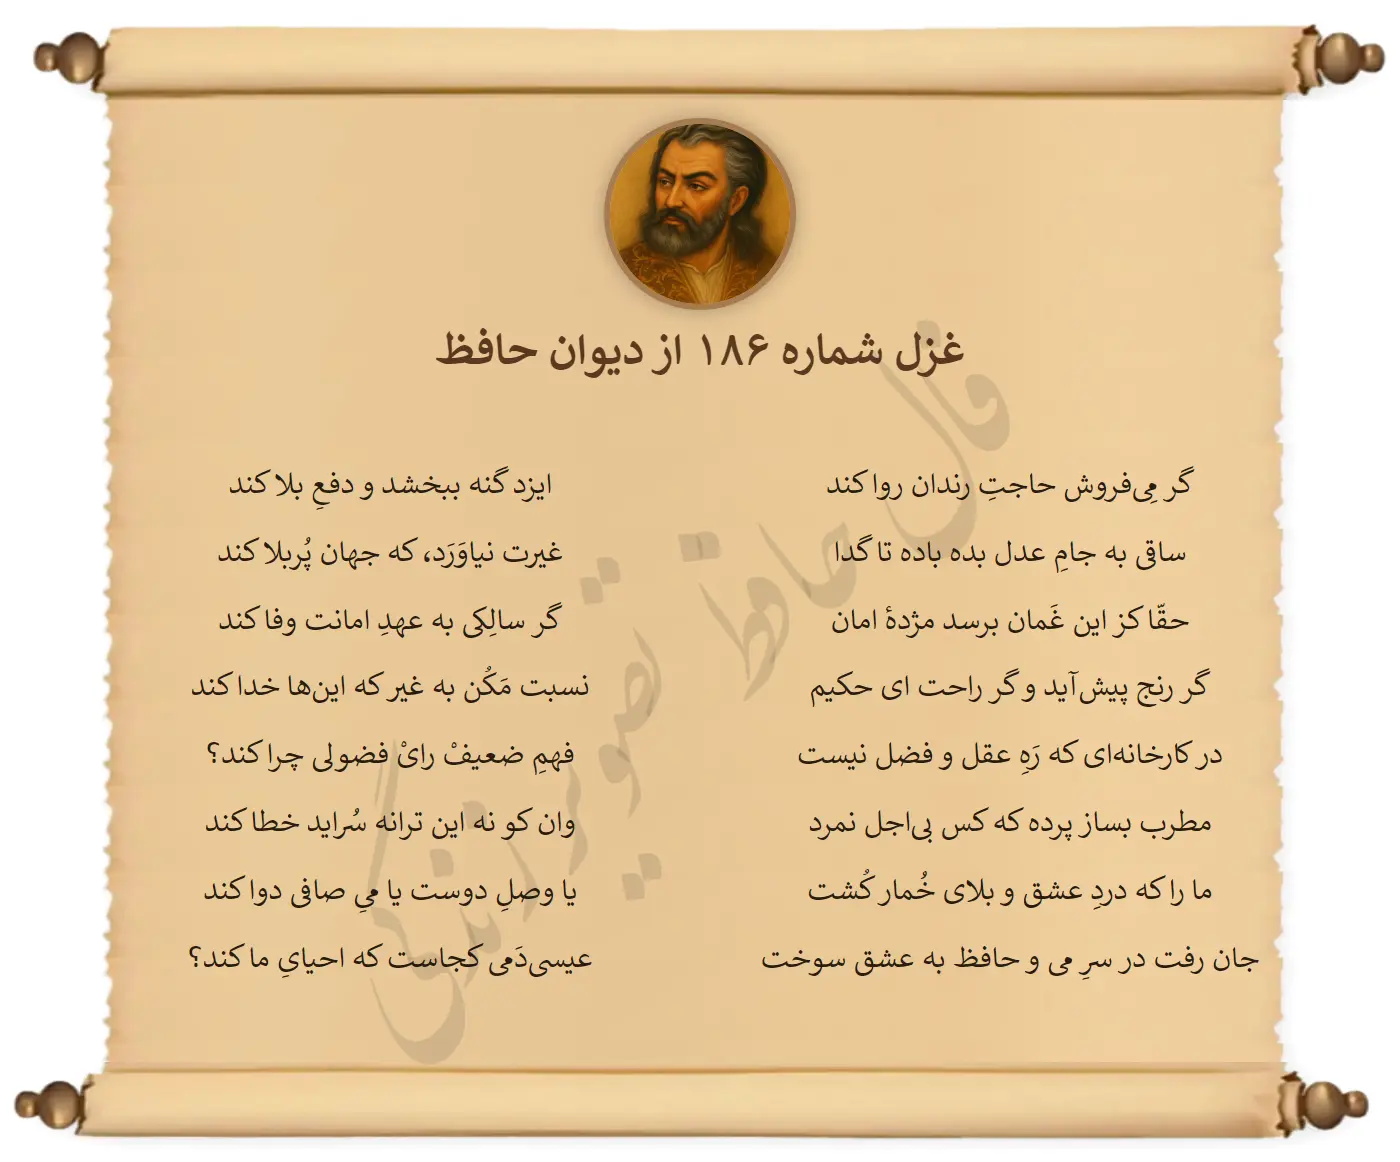 غزل شماره ۱۸۶ از دیوان حافظ
گر مِی‌فروش حاجتِ رندان روا کند
ایزد گنه ببخشد و دفعِ بلا کند
ساقی به جامِ عدل بده باده تا گدا
غیرت نیاوَرَد، که جهان پُربلا کند
حقّا کز این غَمان برسد مژدهٔ امان
گر سالِکی به عهدِ امانت وفا کند
گر رنج پیش‌آید و گر راحت ای حکیم
نسبت مَکُن به غیر که این‌ها خدا کند
در کارخانه‌ای که رَهِ عقل و فضل نیست
فهمِ ضعیفْ رایْ فضولی چرا کند؟
مطرب بساز پرده که کس بی‌اجل نمرد
وان کو نه این ترانه سُراید خطا کند
ما را که دردِ عشق و بلای خُمار کُشت
یا وصلِ دوست یا میِ صافی دوا کند
جان رفت در سرِ می و حافظ به عشق سوخت
عیسی‌دَمی کجاست که احیایِ ما کند؟
فال حافظ تصویر زندگی